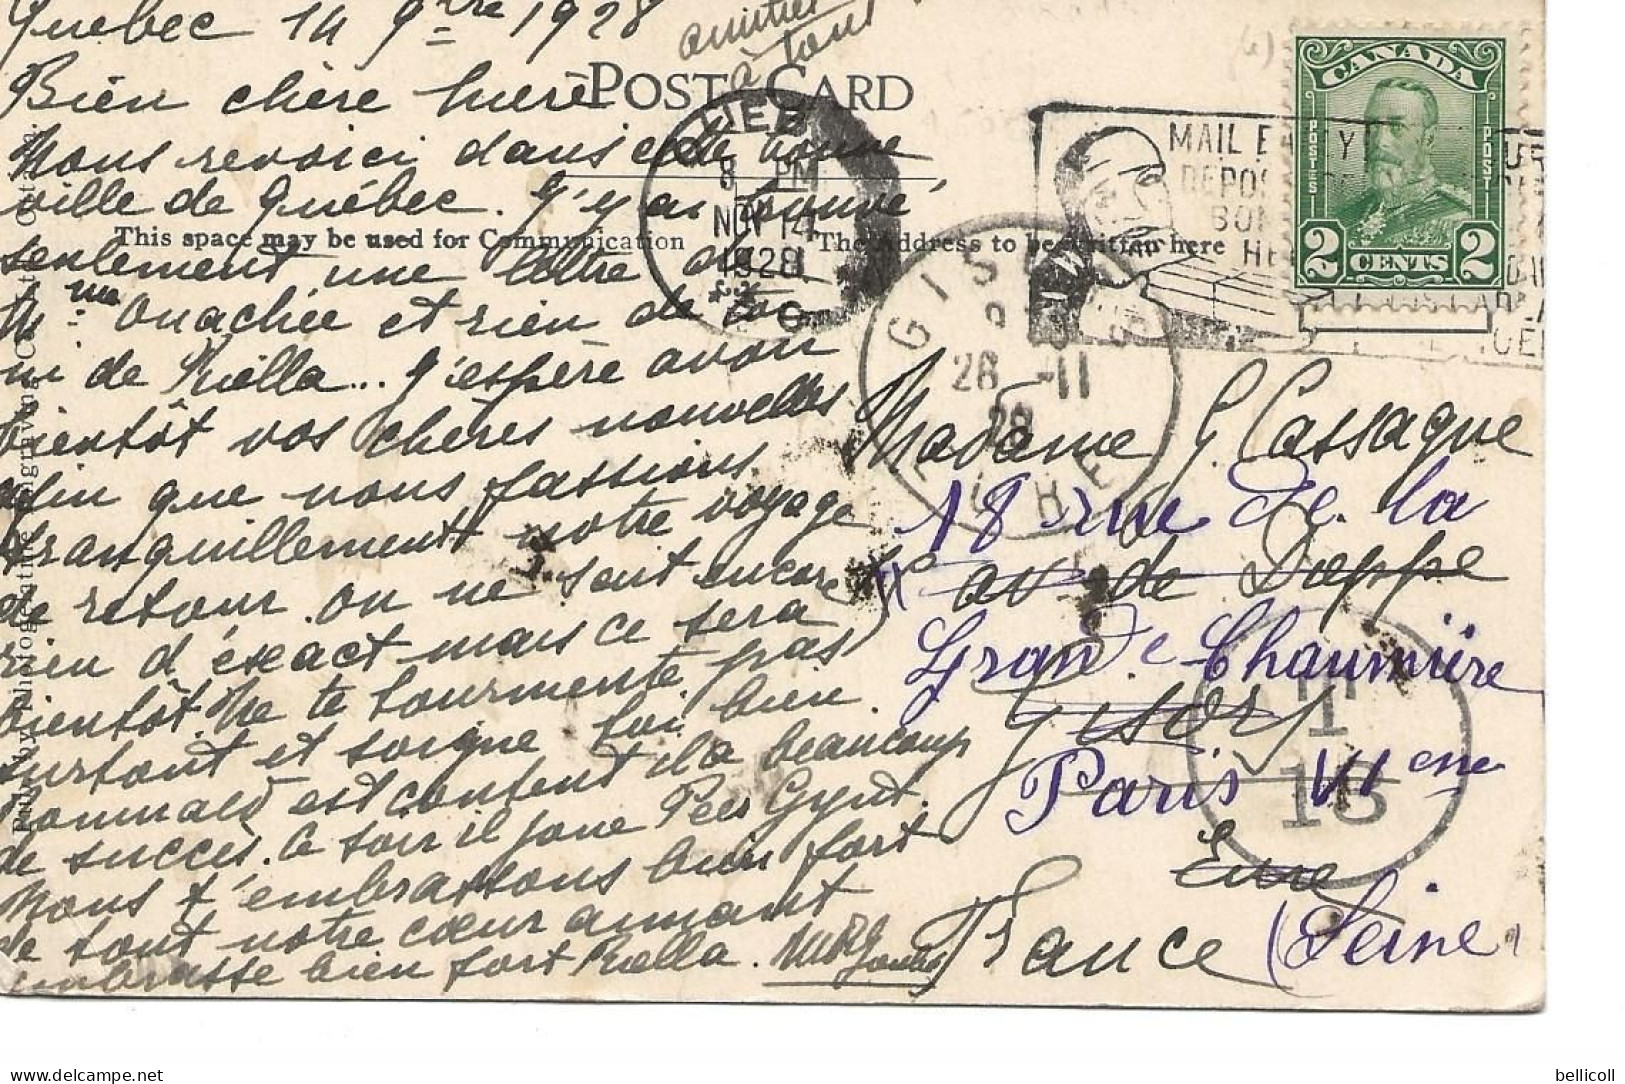 Québec 14 9bre 1928
amitiés
à tous
POST CARD
Bien chère mère
Nous revoici dans cette bonne
ville de Québec. J'y ai trouvé
seulement une lettre de
Mme Ouachée et rien de toi
ni de Riella... J'espère avoir
bientôt vos chères nouvelles
afin que nous fassions
tranquillement notre voyage
de retour. on ne sait encore
rien d'exact mais ce sera
bientôt. Ne te tourmente pas
surtout et soigne toi bien.
Romuald est content il a beaucoup
de succès. Ce soir il joue Peer Gynt.
Nous t'embrassons bien fort
de tout notre cœur aimant
embrasse bien fort Riella.
This space may be used for Communication
The Address to be written here
QUEBEC
8 PM
NOV 14
1928
GISORS
28 -11
28
EURE
MAIL EARLY
CANADA
POSTES
POSTES
2 CENTS 2
Madame G. Cassagne
18 rue de la
av de Dieppe
Grande Chaumière
Gisors
Paris VIeme
Eure
France (Seine)
T
15
bellicoll